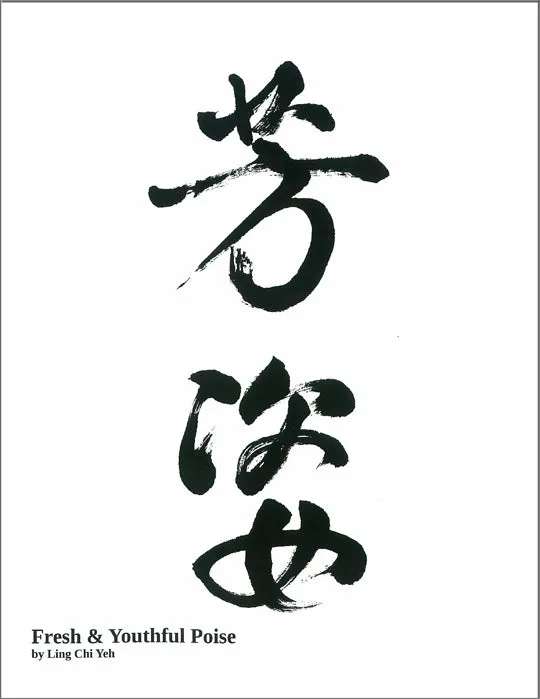 芳
姿
Fresh & Youthful Poise
by Ling Chi Yeh